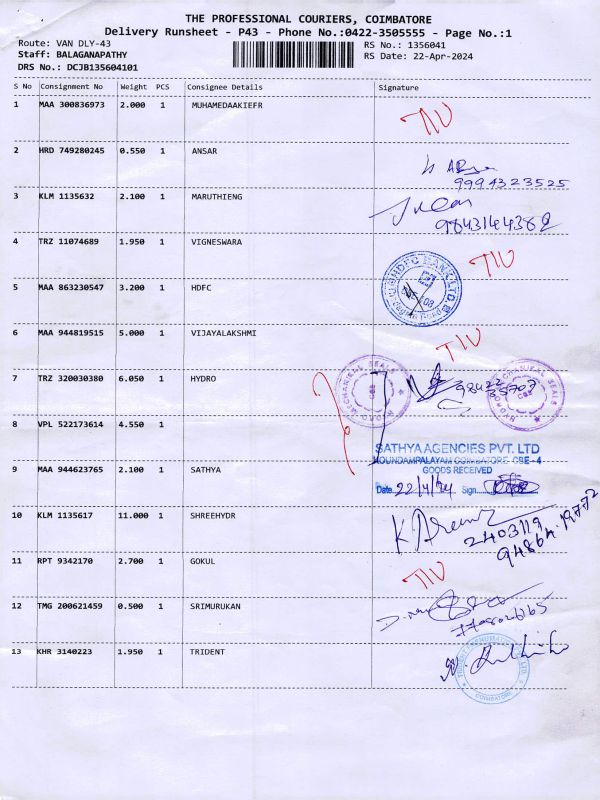 THE PROFESSIONAL COURIERS, COIMBATORE
Delivery Runsheet - P43 - Phone No.:0422-3505555 - Page No.:1
Route: VAN DLY-43 RS No.: 1356041
Staff: BALAGANAPATHY RS Date: 22-Apr-2024
DRS No.: DCJB135604101
S No Consignment No Weight PCS Consignee Details Signature
1 MAA 300836973 2.000 1 MUHAMEDAAKIEFR
2 HRD 749280245 0.550 1 ANSAR
9994323525
3 KLM 1135632 2.100 1 MARUTHIENG
9843144382
4 TRZ 11074689 1.950 1 VIGNESWARA
5 MAA 863230547 3.200 1 HDFC
HDFC BANK LTD.
6 MAA 944819515 5.000 1 VIJAYALAKSHMI
7 TRZ 320030380 6.050 1 HYDRO
HYDRO MECHANICAL SEALS
CBE
HYDRO MECHANICAL SEALS
CBE
8 VPL 522173614 4.550 1
SATHYA AGENCIES PVT. LTD
KOUNDAMPALAYAM COIMBATORE CBE-4
GOODS RECEIVED
9 MAA 944623765 2.100 1 SATHYA
Date 22/4/24 Sign.
10 KLM 1135617 11.000 1 SHREEHYDR
2403119
11 RPT 9342170 2.700 1 GOKUL
12 TMG 200621459 0.500 1 SRIMURUKAN
13 KHR 3140223 1.950 1 TRIDENT
COIMBATORE